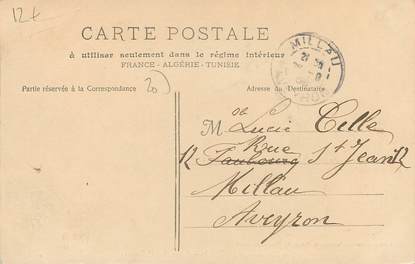 12+
CARTE POSTALE
à utiliser seulement dans le régime intérieur
FRANCE - ALGÉRIE - TUNISIE
MILLAU
AVEYRON
Partie réservée à la Correspondance
20
Adresse du Destinataire
M Lucie Celle
Rue
12 Faubourg St Jean 12
Millau
Aveyron